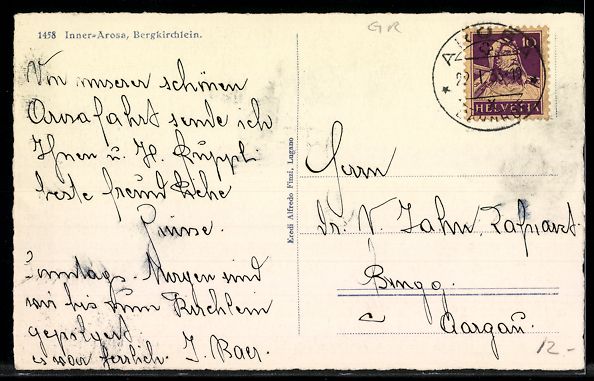 1458 Inner-Arosa, Bergkirchlein.
GR
Von unserer schönen
Arosafahrt sende ich
Ihnen u. H. Ruppli
beste freundliche
Grüsse.
Sonntags. Morgen sind
wir bis zum Kirchlein
gepilgert
es war herrlich. J. Baer.
Eredi Alfredo Finzi, Lugano
AROSA
10
HELVETIA
Herrn
Dr. V. Jahn,
Brugg.
Aargau.
12.-